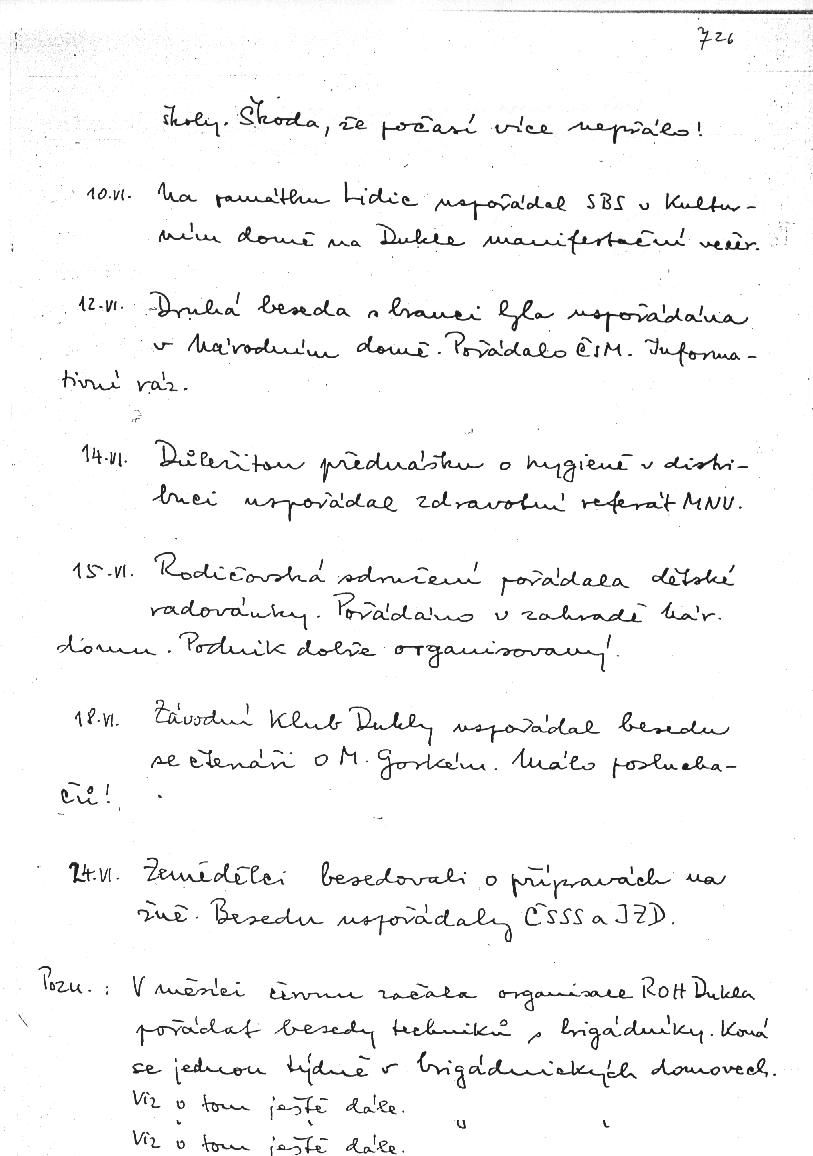 726
školy. Škoda, že počasí více nepřálo!
10.VI. Na památku Lidic uspořádal SBS v Kultur-
ním domě na Dukle manifestační večer.
12.VI. Druhá beseda s branci byla uspořádána
v Národním domě. Pořádalo ČSM. Informa-
tivní ráz.
14.VI. Důležitou přednášku o hygieně v distri-
buci uspořádal zdravotní referát MNV.
15.VI. Rodičovská sdružení pořádala dětské
radovánky. Pořádáno v zahradě Nár.
domu. Podnik dobře organisovaný.
18.VI. Závodní klub Dukly uspořádal besedu
se čtenáři o M. Gorkém. Málo poslucha-
čů!
24.VI. Zemědělci besedovali o přípravách na
žně. Besedu uspořádaly ČSSS a JZD.
Pozn.: V měsíci červnu začala organisace ROH Dukla
pořádat besedy techniků s brigádníky. Koná
se jednou týdně v brigádnických domovech.
Viz o tom ještě dále.
Viz o tom ještě dále.